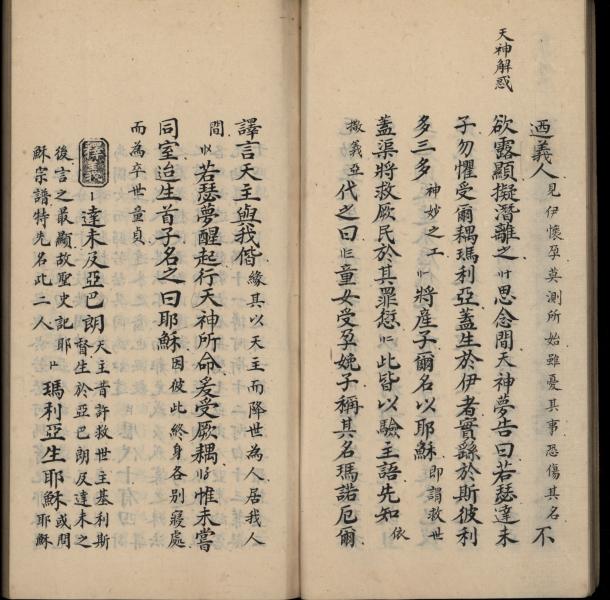 天神解惑
迺義人見伊懷孕莫測所始雖憂其事恐傷其名不
欲露顯擬潛離之思念間天神夢告曰若瑟達未
子勿懼受爾耦瑪利亞蓋生於伊者實繇於斯彼利
多三多神妙之工將產子爾名以耶穌即謂救世
蓋渠將救厥民於其罪愆此皆以驗主語先知依
撒義亞代之曰童女受孕娩子稱其名瑪諾厄爾
譯言天主與我偕緣其以天主而降世為人居我人
間若瑟夢醒起行天神所命爰受厥耦惟未嘗
同室迨生首子名之曰耶穌因彼此終身各別寢處
而為卒世童貞
釋義達未及亞巴朗天主昔許救世主基利斯督生於亞巴朗及達未之
後言之最顯故聖史記耶穌宗譜特先名此二人瑪利亞生耶穌或問耶穌